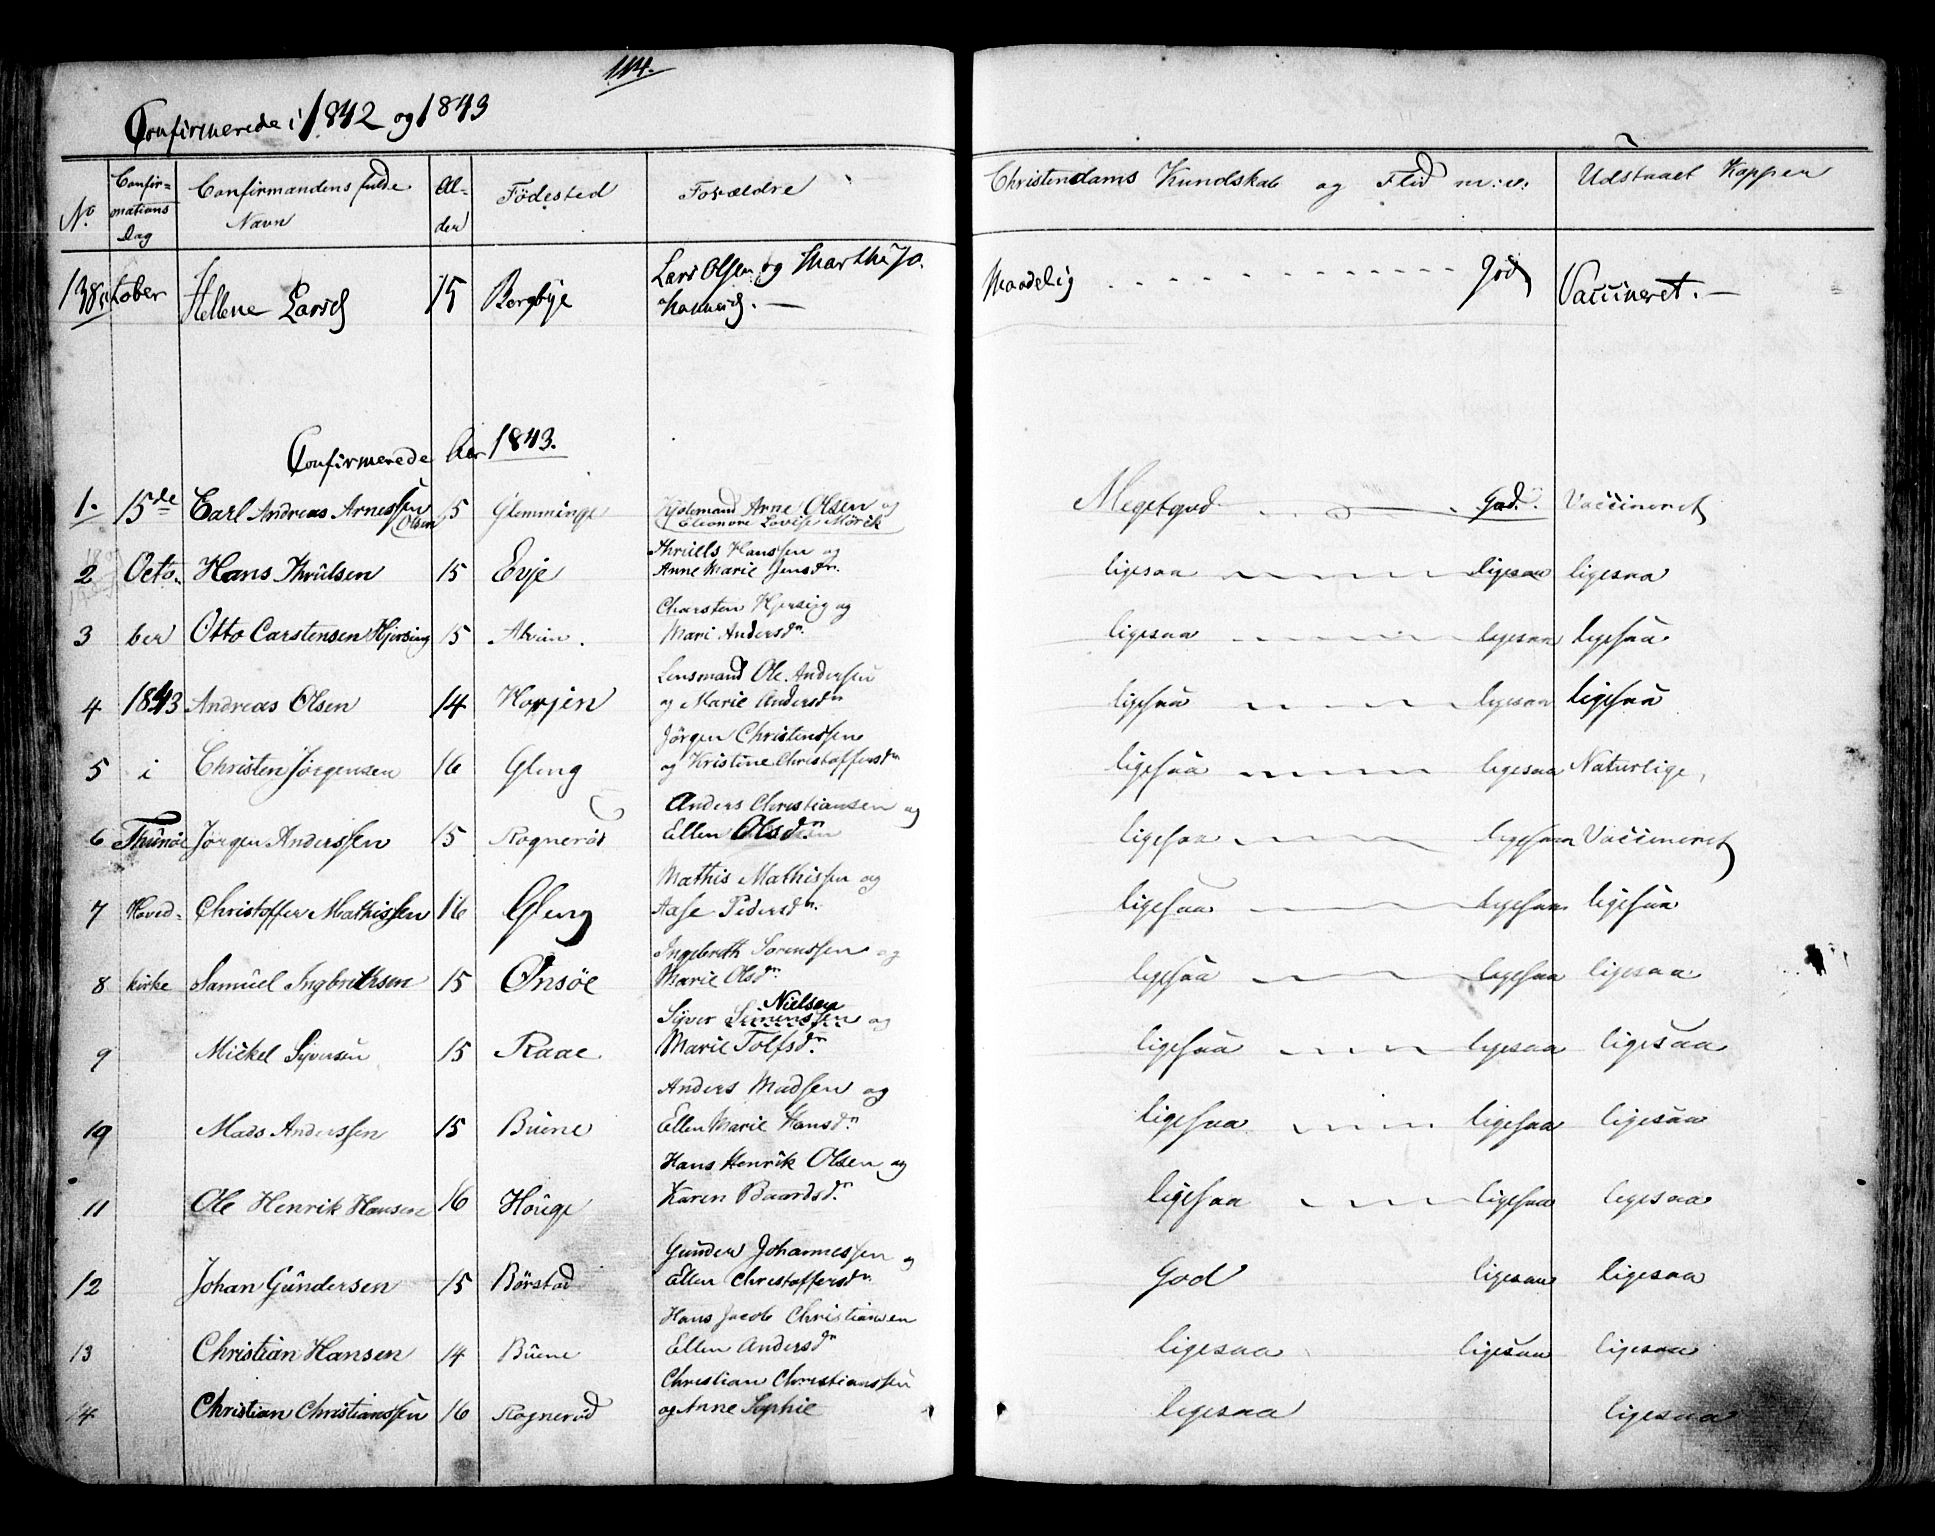 114.
Confirmerede i 1842 og 1843
No. Confirmations Dag Confirmandens fulde Navn Alder Födested Forældre Christendams Kundskab og Flid m: v: Udstaaet Kopper
138 October Hellene Larsd 15 Borgbye Lars Olsen og Martha Johannesd. — Maadelig God Vaccineret. —
Confirmerede Aar 1843.
1. 15de Carl Andreas Arnessen Olsen 15 Glemminge Arne Olsen og Eleonore Lovise Mørck Megetgod God. Vaccineret
2 Octo- Hans Thrulsen 15 Evje Thruels Hanssen og Anne Marie Jensdn. ligesaa ligesaa ligesaa
3 ber Otto Carstensen Hjersing 15 Alvim. Charsten Hjersing og Mari Andersdn. ligesaa ligesaa ligesaa
4 1843 Andreas Olsen 14 Lensmand Ole Anderssen og Marie Andersdn ligesaa ligesaa ligesaa
5 i Christen Jörgensen 16 Gleng Jörgen Christenssen og Kristine Christoffersdn ligesaa ligesaa Naturlige
6 Thunøe Jörgen Anderssen 15 Rognerød Anders Christiansen og Ellen Olsdn ligesaa ligesaa Vaccineret
7 Hoved- Christoffer Mathissen 16 Gleng Mathis Mathissen og Aase Pedersdn. ligesaa ligesaa ligesaa
8 kirke Samuel Ingbretsen 15 Onsøe Ingebreth Sörenssen og Marie Olsdn ligesaa ligesaa ligesaa
9 Mickel Syversen 15 Raae Syver Simenssen Nielsen og Marie Tolfsdn. ligesaa ligesaa ligesaa
10 Mads Anderssen 15 Buene Anders Madssen og Ellen Marie Hansdn ligesaa ligesaa ligesaa
11 Ole Henrik Hansen 16 Houge Hans Henrik Olsen og Karen Baardsdn ligesaa ligesaa ligesaa
12 Johan Gundersen 15 Börstad Gunder Johannessen og Ellen Christoffersdn God ligesaa ligesaa
13 Christian Hansen 14 Buene Hans Jacob Christiansen Ellen Andersdn ligesaa ligesaa ligesaa
14 Christian Christianssen 16 Rognerød Christian Christianssen og Anne Sophie ligesaa ligesaa